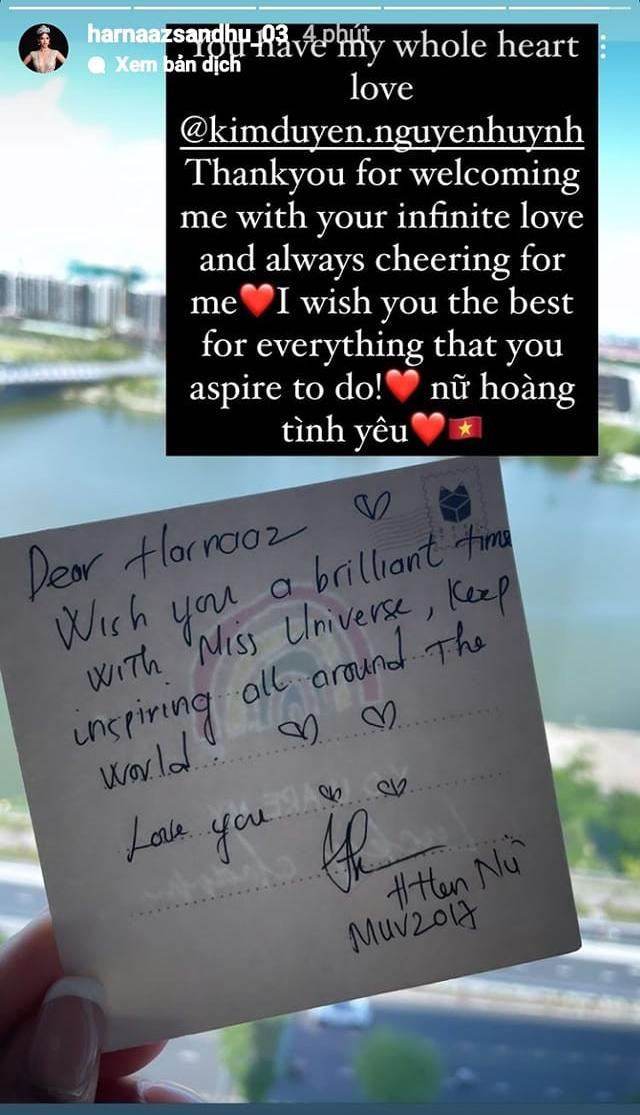 harnaazsandhu_03 4 phút
Xem bản dịch
You have my whole heart
love
@kimduyen.nguyenhuynh
Thankyou for welcoming
me with your infinite love
and always cheering for
me❤️I wish you the best
for everything that you
aspire to do!❤️ nữ hoàng
tình yêu❤️🇻🇳
Dear Harnaaz
Wish you a brilliant time
with Miss Universe, Keep
inspiring all around The
world.
Love you
H'Hen Niê
MUV2017